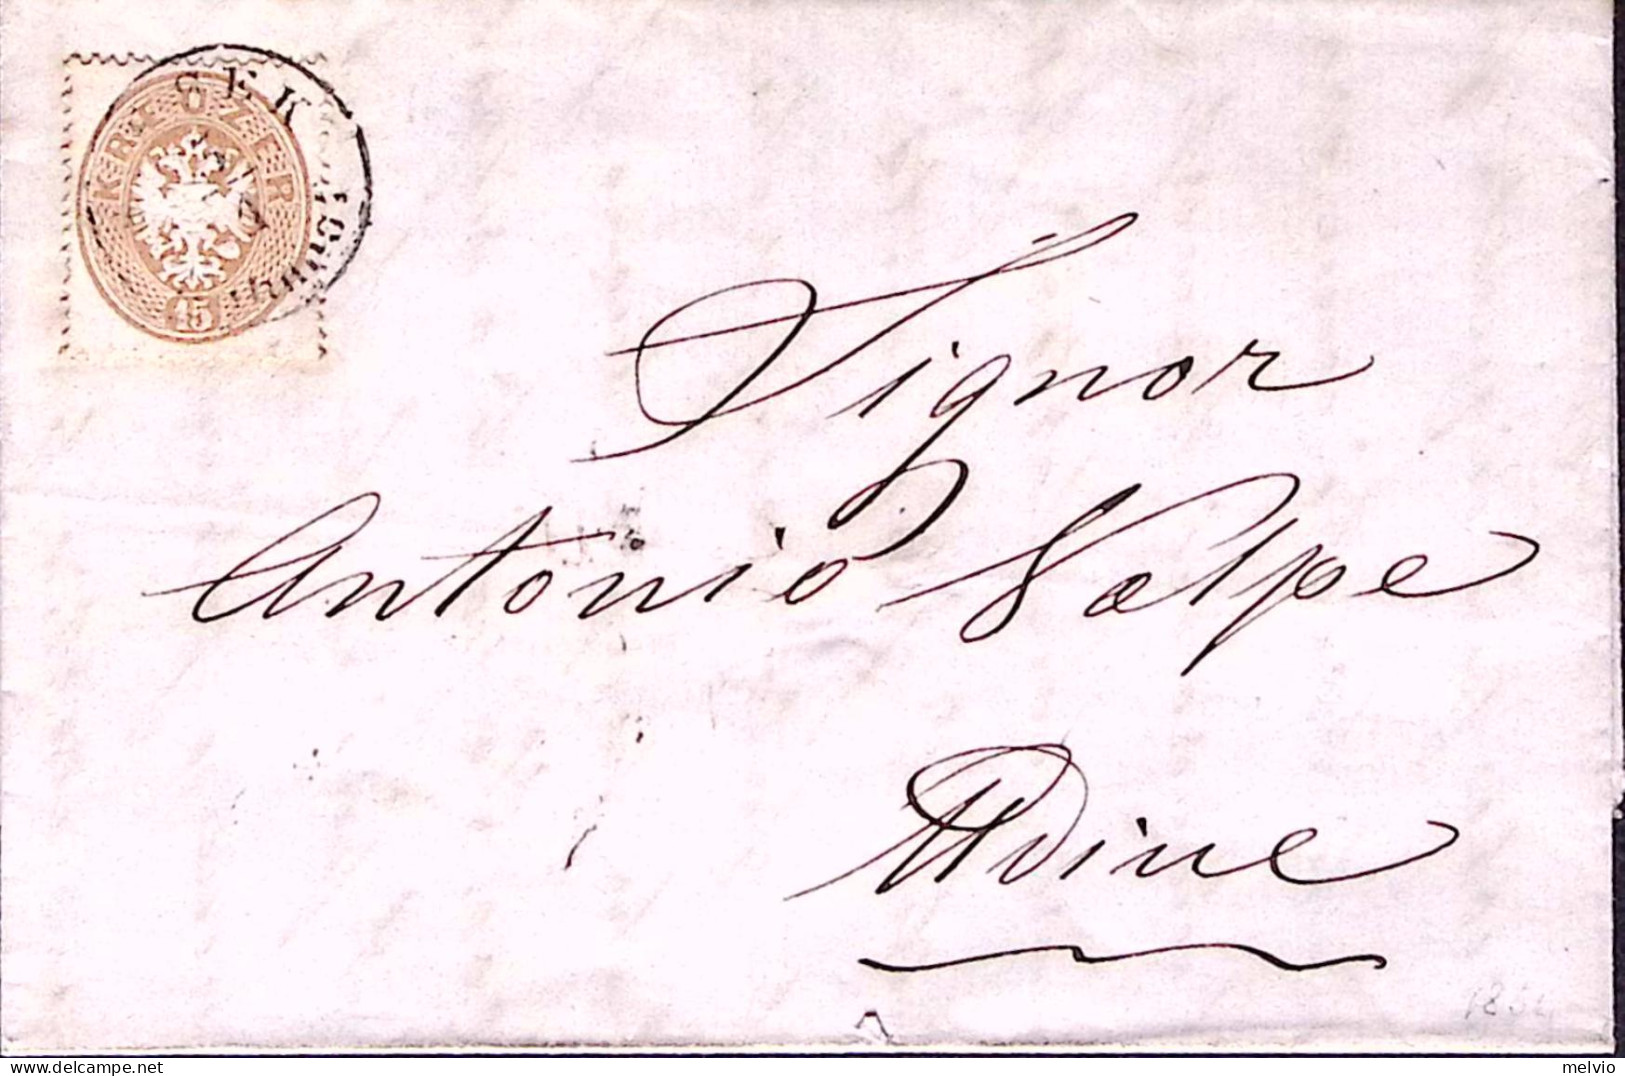 KREUZER
15
Signor
Antonio Volpe
Udine
melvio